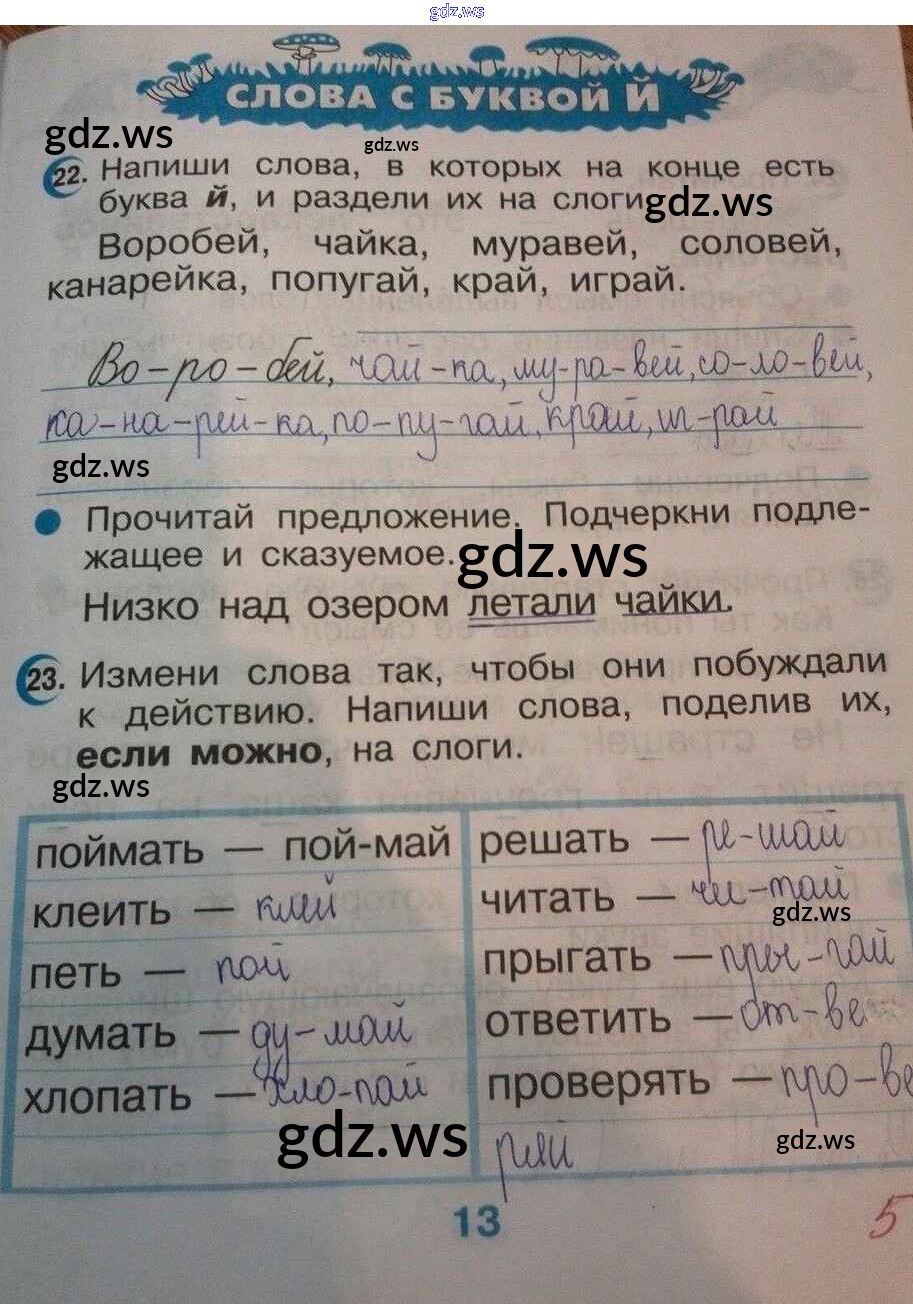 gdz.ws
СЛОВА С БУКВОЙ Й
gdz.ws
gdz.ws
22. Напиши слова, в которых на конце есть
буква й, и раздели их на слоги
gdz.ws
Воробей, чайка, муравей, соловей,
канарейка, попугай, край, играй.
Во-ро-бей, чай-ка, му-ра-вей, со-ло-вей,
ка-на-рей-ка, по-пу-гай, край, иг-рай
gdz.ws
Прочитай предложение. Подчеркни подле-
жащее и сказуемое.
gdz.ws
Низко над озером летали чайки.
23. Измени слова так, чтобы они побуждали
к действию. Напиши слова, поделив их,
если можно, на слоги.
gdz.ws
поймать — пой-май
клеить — клей
петь — пой
думать — ду-май
хлопать — хло-пай
gdz.ws
решать — ре-шай
читать — чи-тай
gdz.ws
прыгать — пры-гай
ответить — от-ве
проверять — про-ве
ряй
gdz.ws
13
5